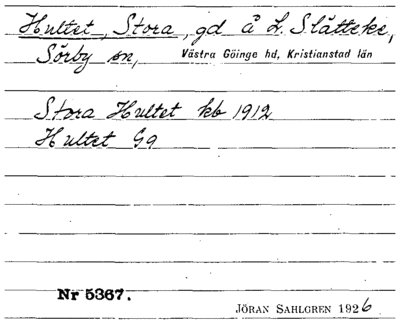 Hultet, Stora, gd å L. Slätteke,
Sörby sn, Västra Göinge hd, Kristianstad län
Stora Hultet kb 1912
Hultet Gg
Nr 5367.
JÖRAN SAHLGREN 1926